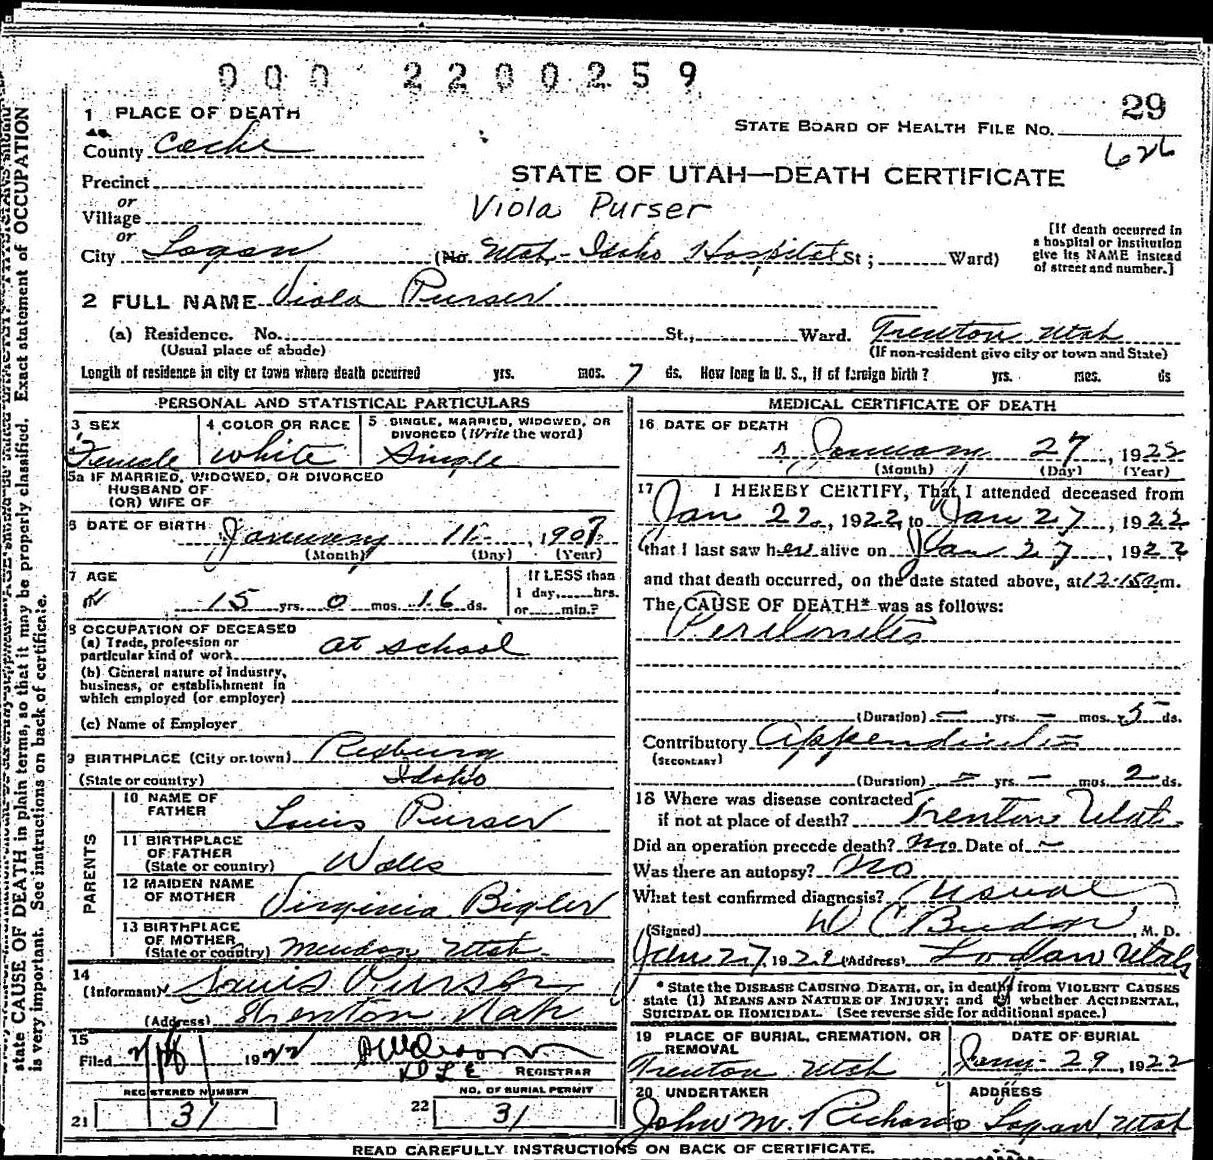 000 2200259
29
1 PLACE OF DEATH
STATE BOARD OF HEALTH FILE No.
626
County Cache
STATE OF UTAH—DEATH CERTIFICATE
Precinct
or
Village
Viola Purser
or
City Logan (No Utah-Idaho Hospital St; Ward)
[If death occurred in a hospital or institution give its NAME instead of street and number.]
2 FULL NAME Viola Purser
(a) Residence. No. St., Ward. Trenton Utah
(Usual place of abode) (If non-resident give city or town and State)
Length of residence in city or town where death occurred yrs. mos. 7 ds. How long in U. S., if of foreign birth? yrs. mos. ds
PERSONAL AND STATISTICAL PARTICULARS
3 SEX Female
4 COLOR OR RACE White
5 SINGLE, MARRIED, WIDOWED, OR DIVORCED (Write the word) Single
5a IF MARRIED, WIDOWED, OR DIVORCED
HUSBAND OF
(OR) WIFE OF
6 DATE OF BIRTH January 11, 1907
(Month) (Day) (Year)
7 AGE
15 yrs. 0 mos. 16 ds.
If LESS than
1 day, hrs.
or min.?
8 OCCUPATION OF DECEASED
(a) Trade, profession or
particular kind of work at school
(b) General nature of industry,
business, or establishment in
which employed (or employer)
(c) Name of Employer
9 BIRTHPLACE (City or town) Rexburg
(State or country) Idaho
PARENTS
10 NAME OF FATHER Louis Purser
11 BIRTHPLACE OF FATHER (State or country) Wales
12 MAIDEN NAME OF MOTHER Virginia Bigler
13 BIRTHPLACE OF MOTHER (State or country) Mendon Utah
14 (Informant) Louis Purser
(Address) Trenton Utah
15
Filed 1922
REGISTRAR
REGISTERED NUMBER
21 31
NO. OF BURIAL PERMIT
22 31
MEDICAL CERTIFICATE OF DEATH
16 DATE OF DEATH
January 27, 1922
(Month) (Day) (Year)
17 I HEREBY CERTIFY, That I attended deceased from
Jan 22, 1922, to Jan 27, 1922
that I last saw her alive on Jan 27, 1922
and that death occurred, on the date stated above, at 12-15a m.
The CAUSE OF DEATH* was as follows:
Peritonitis
(Duration) – yrs. – mos. 5 ds.
Contributory Appendicitis
(SECONDARY)
(Duration) – yrs. – mos. 2 ds.
18 Where was disease contracted
if not at place of death? Trenton Utah
Did an operation precede death? no Date of –
Was there an autopsy? No
What test confirmed diagnosis? Usual
(Signed) D C Budge, M. D.
Jan 27, 1922 (Address) Logan Utah
* State the DISEASE CAUSING DEATH, or, in deaths from VIOLENT CAUSES
state (1) MEANS AND NATURE OF INJURY; and (2) whether ACCIDENTAL,
SUICIDAL OR HOMICIDAL. (See reverse side for additional space.)
19 PLACE OF BURIAL, CREMATION, OR REMOVAL
Trenton Utah
DATE OF BURIAL
Jany 29, 1922
20 UNDERTAKER
John M. Richards
ADDRESS
Logan Utah
READ CAREFULLY INSTRUCTIONS ON BACK OF CERTIFICATE.
state CAUSE OF DEATH in plain terms, so that it may be properly classified. Exact statement of OCCUPATION
is very important. See instructions on back of certificate.